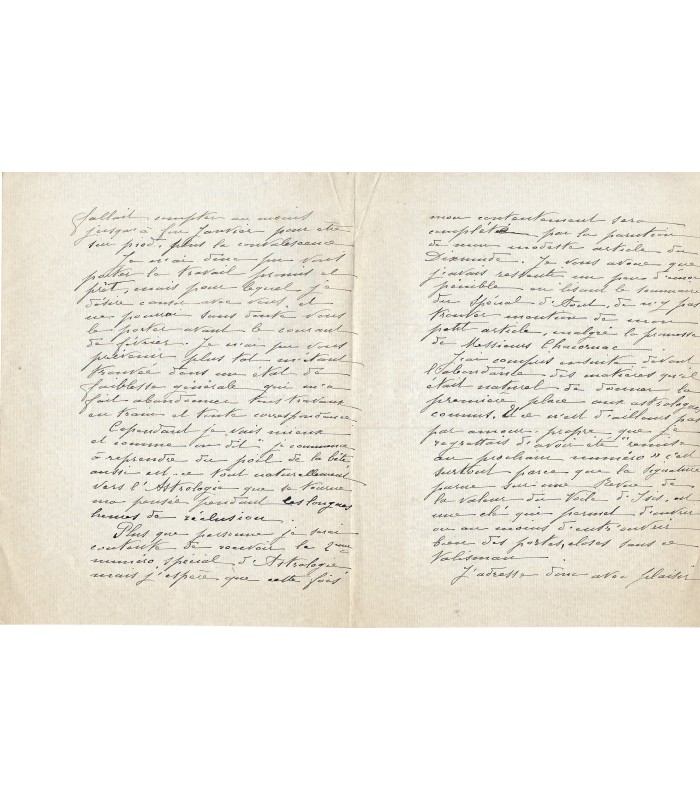 fallait compter au moins
jusqu'à fin Janvier pour être
sur pied, puis la convalescence
Je n'ai donc pu vous
porter le travail promis et
prêt, mais pour lequel j'ai
désiré causer avec vous, et
ne pourrai sans doute vous
le porter avant le courant
de février. Je n'ai pu vous
prévenir plus tôt m'étant
trouvée dans un état de
faiblesse générale qui m'a
fait abandonner tous travaux
en train et toute correspondance.
Cependant je vais mieux
et comme on dit "je commence
à reprendre du poil de la bête
aussi est-ce tout naturellement
vers l'Astrologie que se tourne
ma pensée pendant les longues
heures de réclusion.
Plus que personne je serai
contente de recevoir le 2eme
numéro spécial d'Astrologie,
mais j'espère que cette fois
mon contentement sera
complété par la parution
de mon modeste article du
Je vous avoue que
j'avais ressenti un peu d'
pénible en lisant le sommaire
du Spécial d'Aout, de n'y pas
trouver mention de mon
petit article, malgré la promesse
de Messieurs Chacornac
J'ai compris ensuite devant
l'abondance des matières qu'il
était naturel de donner la
première place aux astrologues
connus. Et ce n'est d'ailleurs pas
par amour-propre que je
regrettais d'avoir été "remise
au prochain numéro" c'est
surtout parce que la signature
parue sur une Revue de
la valeur du Voile d'Isis, est
une clé qui permet d'ouvrir
ou au moins d'entr'ouvrir
bien des portes, closes sans ce
Talisman.
J'adresse donc avec plaisir